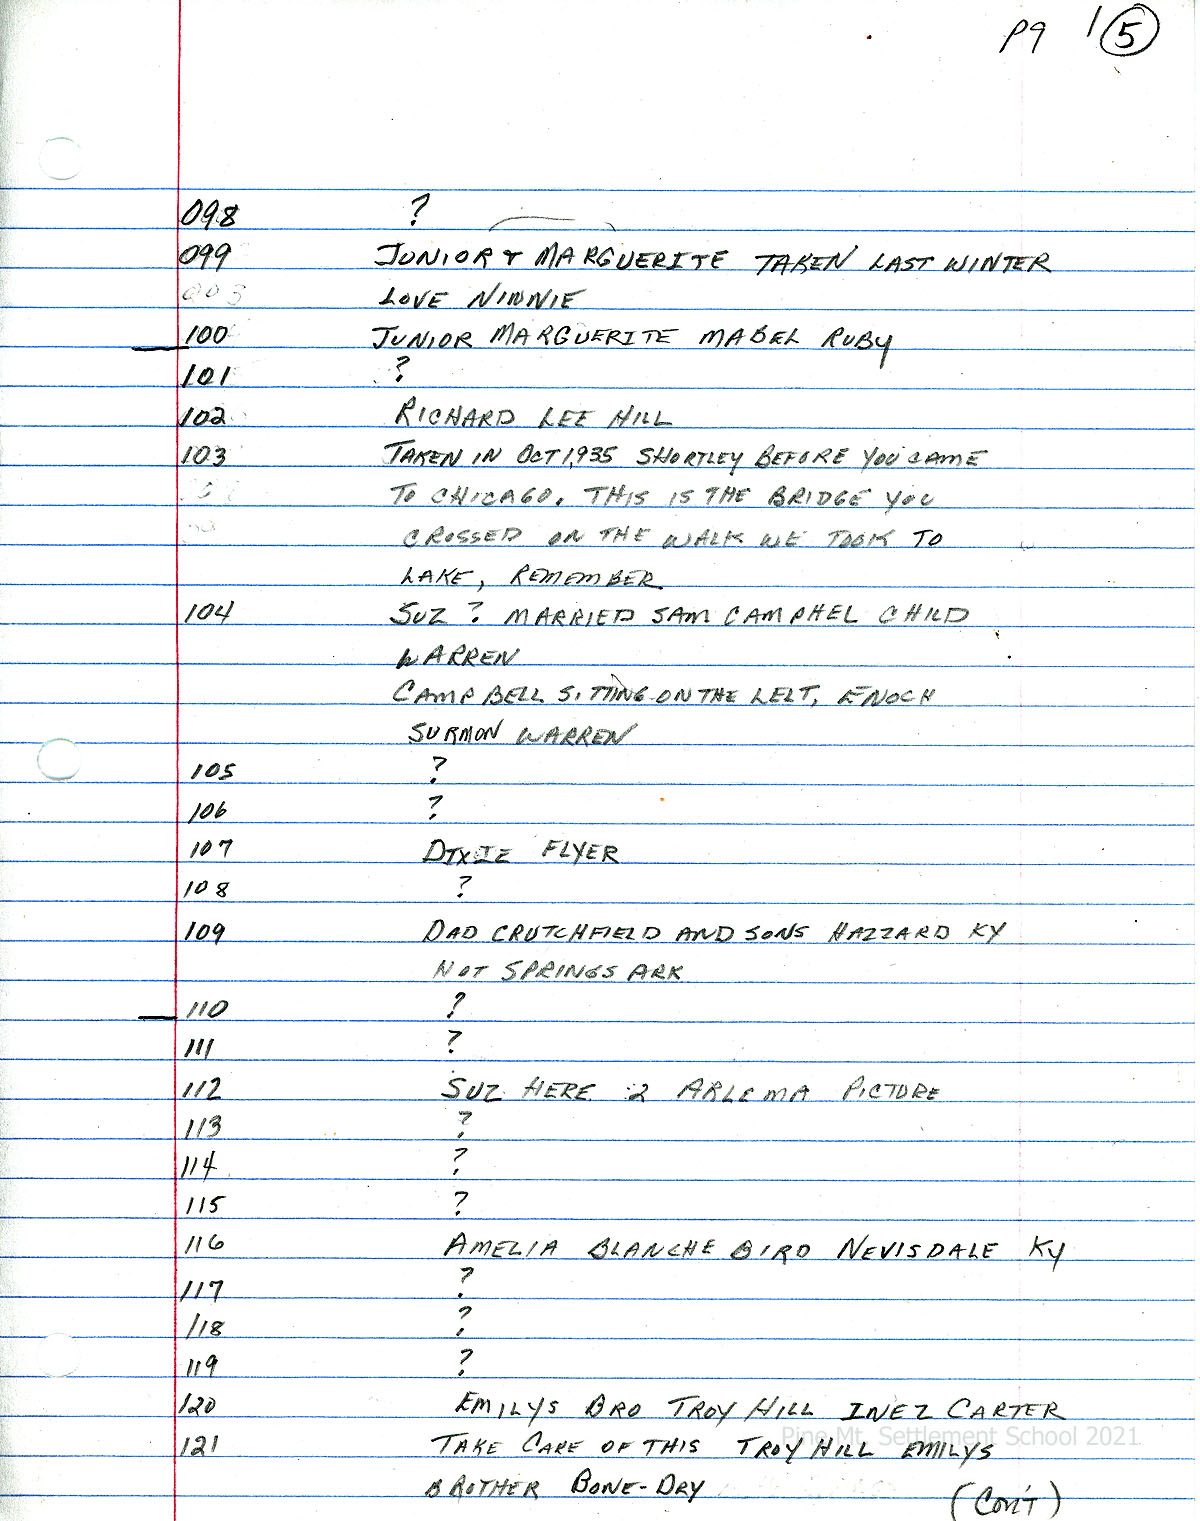 P9 1 5
098 ?
099 JUNIOR & MARGUERITE TAKEN LAST WINTER
LOVE NINNIE
100 JUNIOR MARGUERITE MABEL RUBY
101 ?
102 RICHARD LEE HILL
103 TAKEN IN OCT 1,935 SHORTLEY BEFORE YOU CAME
TO CHICAGO. THIS IS THE BRIDGE YOU
CROSSED ON THE WALK WE TOOK TO
LAKE, REMEMBER
104 SUZ ? MARRIED SAM CAMPHEL CHILD
WARREN
CAMPBELL SITTING ON THE LELT, ENOCH
SURMON WARREN
105 ?
106 ?
107 DIXIE FLYER
108 ?
109 DAD CRUTCHFIELD AND SONS HAZZARD KY
HOT SPRINGS ARK
110 ?
111 ?
112 SUZ HERE :2 ARLEMA PICTURE
113 ?
114 ?
115 ?
116 AMELIA BLANCHE BIRD NEVISDALE KY
117 ?
118 ?
119 ?
120 EMILYS BRO TROY HILL INEZ CARTER
121 TAKE CARE OF THIS TROY HILL EMILYS
BROTHER BONE-DRY
(CON'T)
Pine Mt. Settlement School 2021